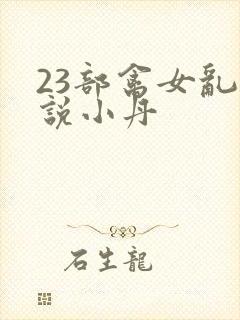 23部禽女亂
說小丹
石生龍